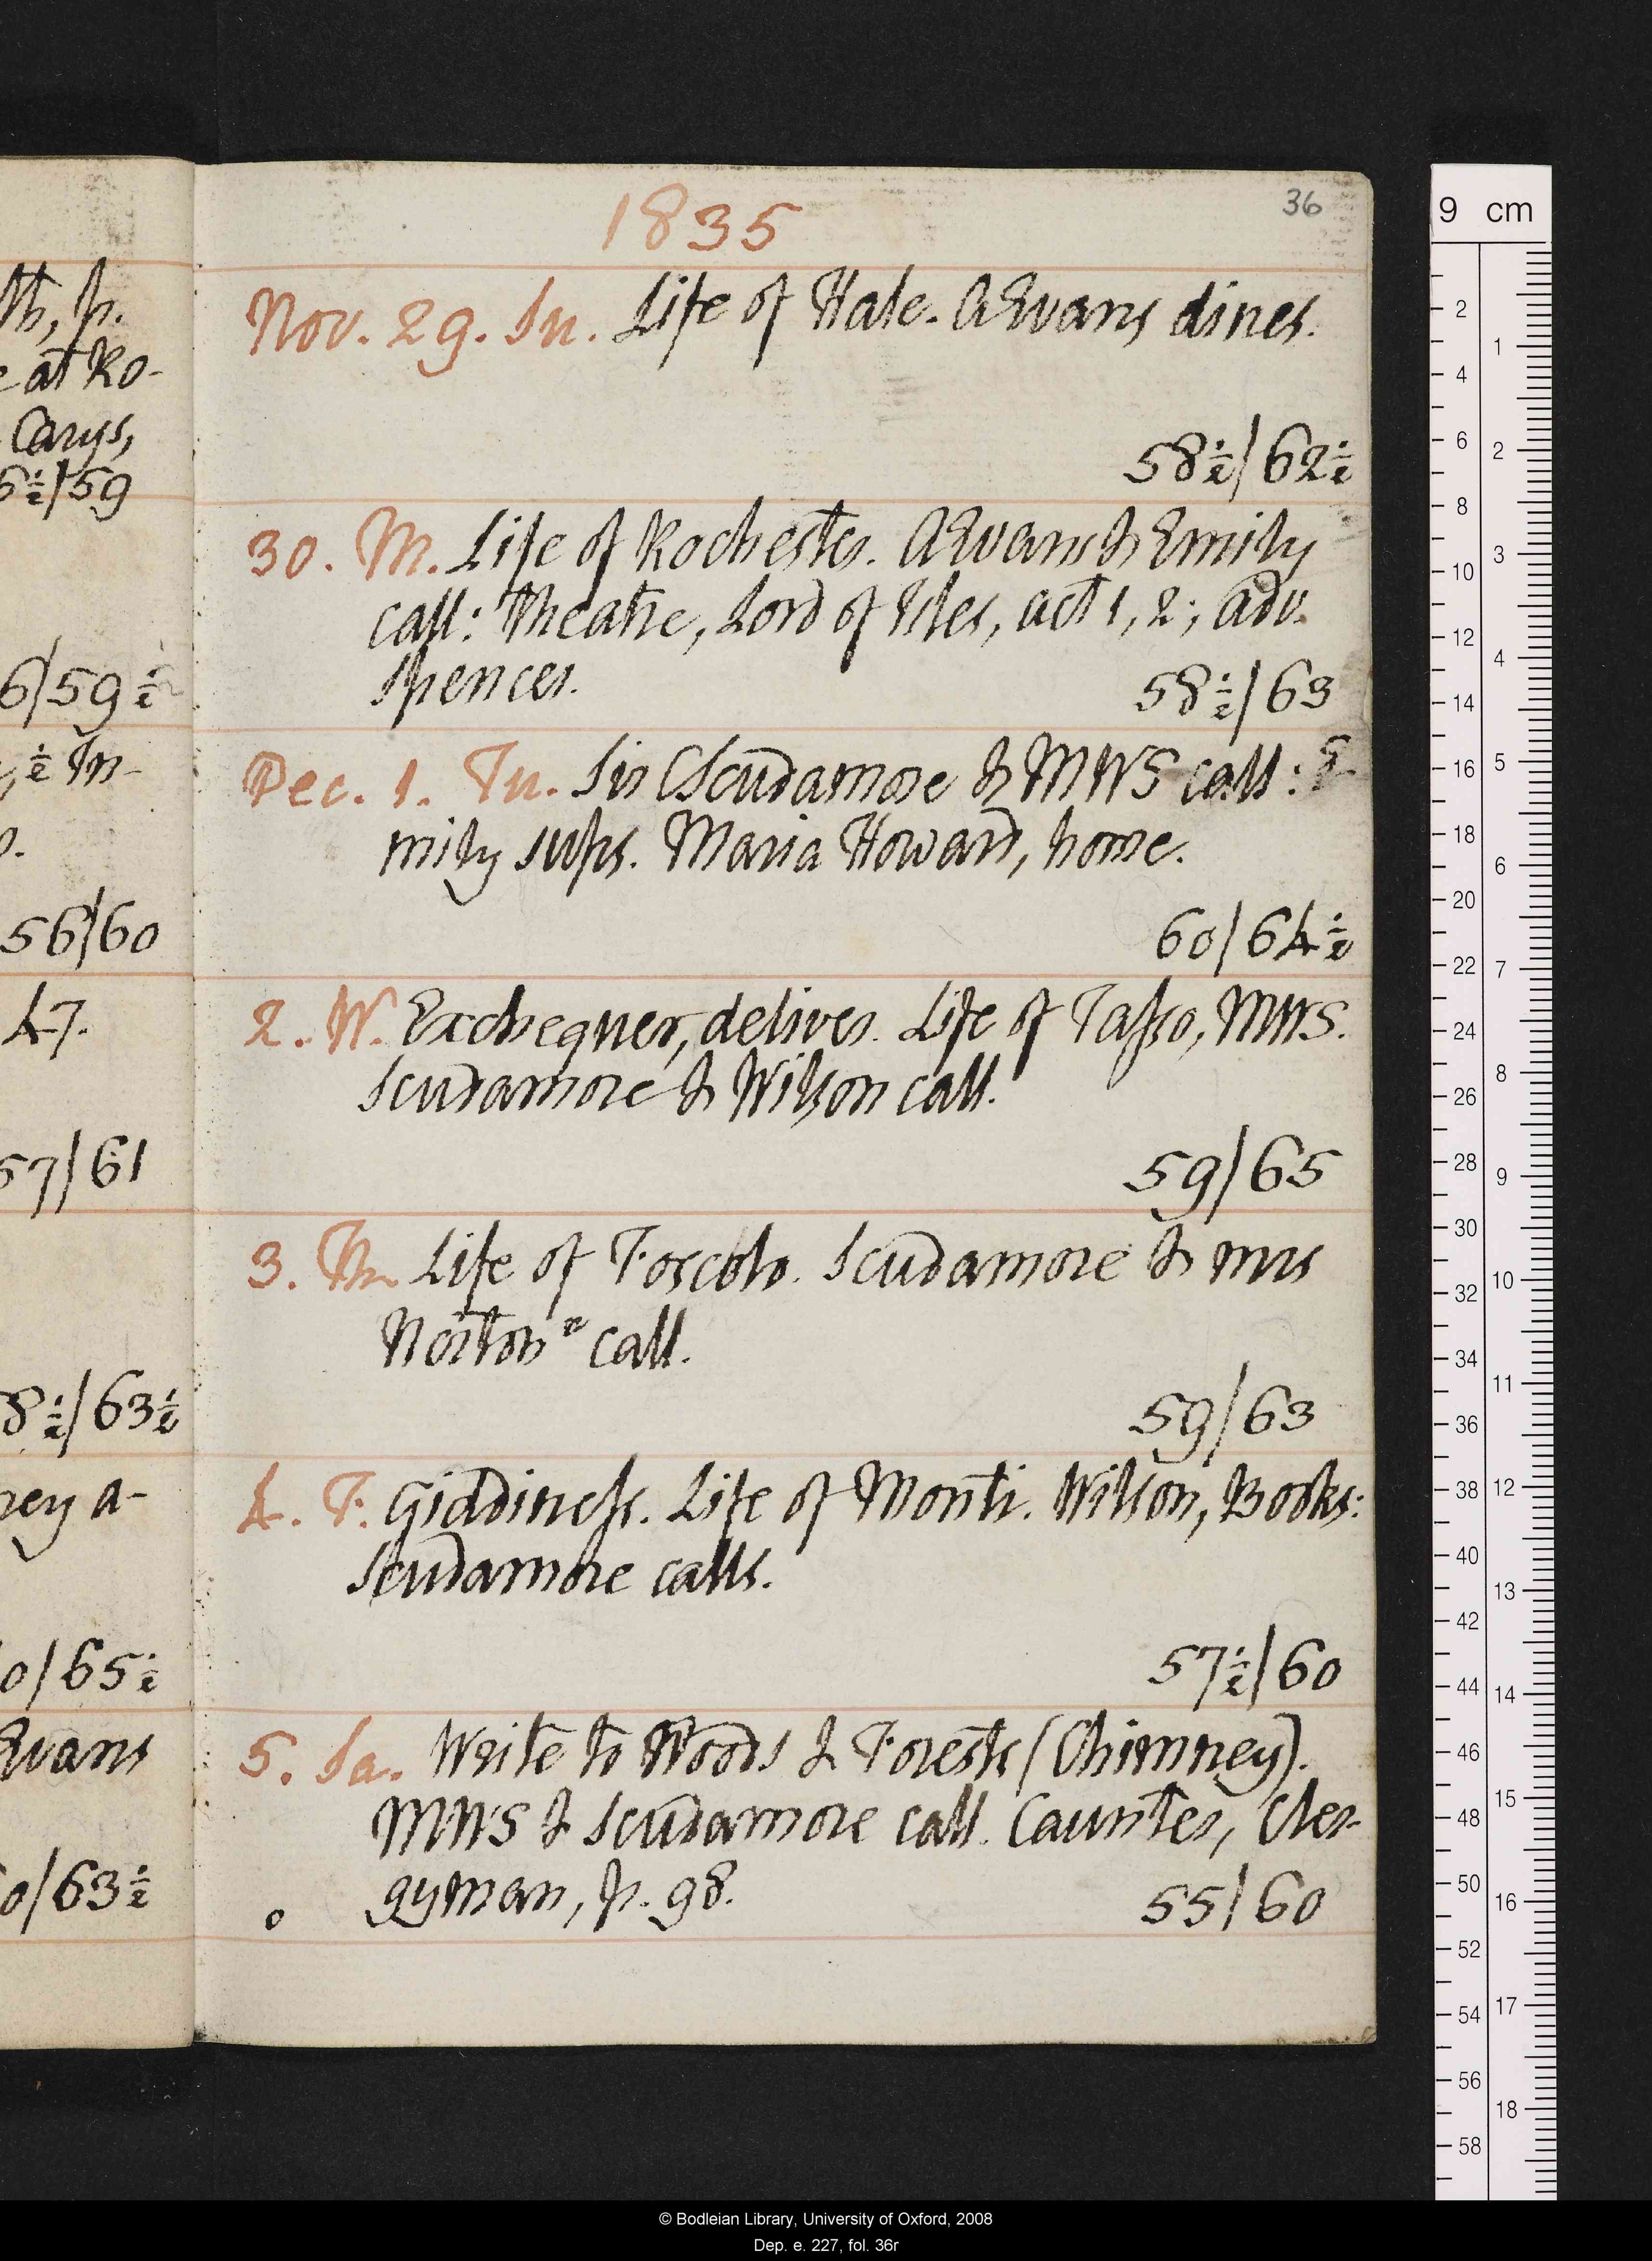 36
1835
Nov. 29. Su. Life of Hale. AEvans dines.
58½/62½
30. M. Life of Rochester. AEvans & Emily
call: Theatre, Lord of Isles, act 1, 2; adv.
Spences.
58½/63
Dec. 1. Tu. Sir CScudamore & MWS call: E-
mily sups. Maria Howard, home.
60/64½
2. W. Exchequer, deliver. Life of Tasso, MWS.
Scudamore & Wilson call.
59/65
3. Th. Life of Foscolo. Scudamore & mrs
Norton n call.
59/63
4. F. Giddiness. Life of Monti. Wilson, Books:
Scudamore calls.
57½/60
5. Sa. Write to Woods & Forests (Chimney).
MWS & Scudamore call. Caunter, Cler-
gyman, p. 98.
55/60
th, p.
e at Ro-
Carys,
6½/59
6/59½
, ½ In-
56/60
47.
57/61
8½/63½
ney a-
0/65½
Evans
0/63½
9 cm
2
4
6
8
10
12
14
16
18
20
22
24
26
28
30
32
34
36
38
40
42
44
46
48
50
52
54
56
58
1
2
3
4
5
6
7
8
9
10
11
12
13
14
15
16
17
18
© Bodleian Library, University of Oxford, 2008
Dep. e. 227, fol. 36r